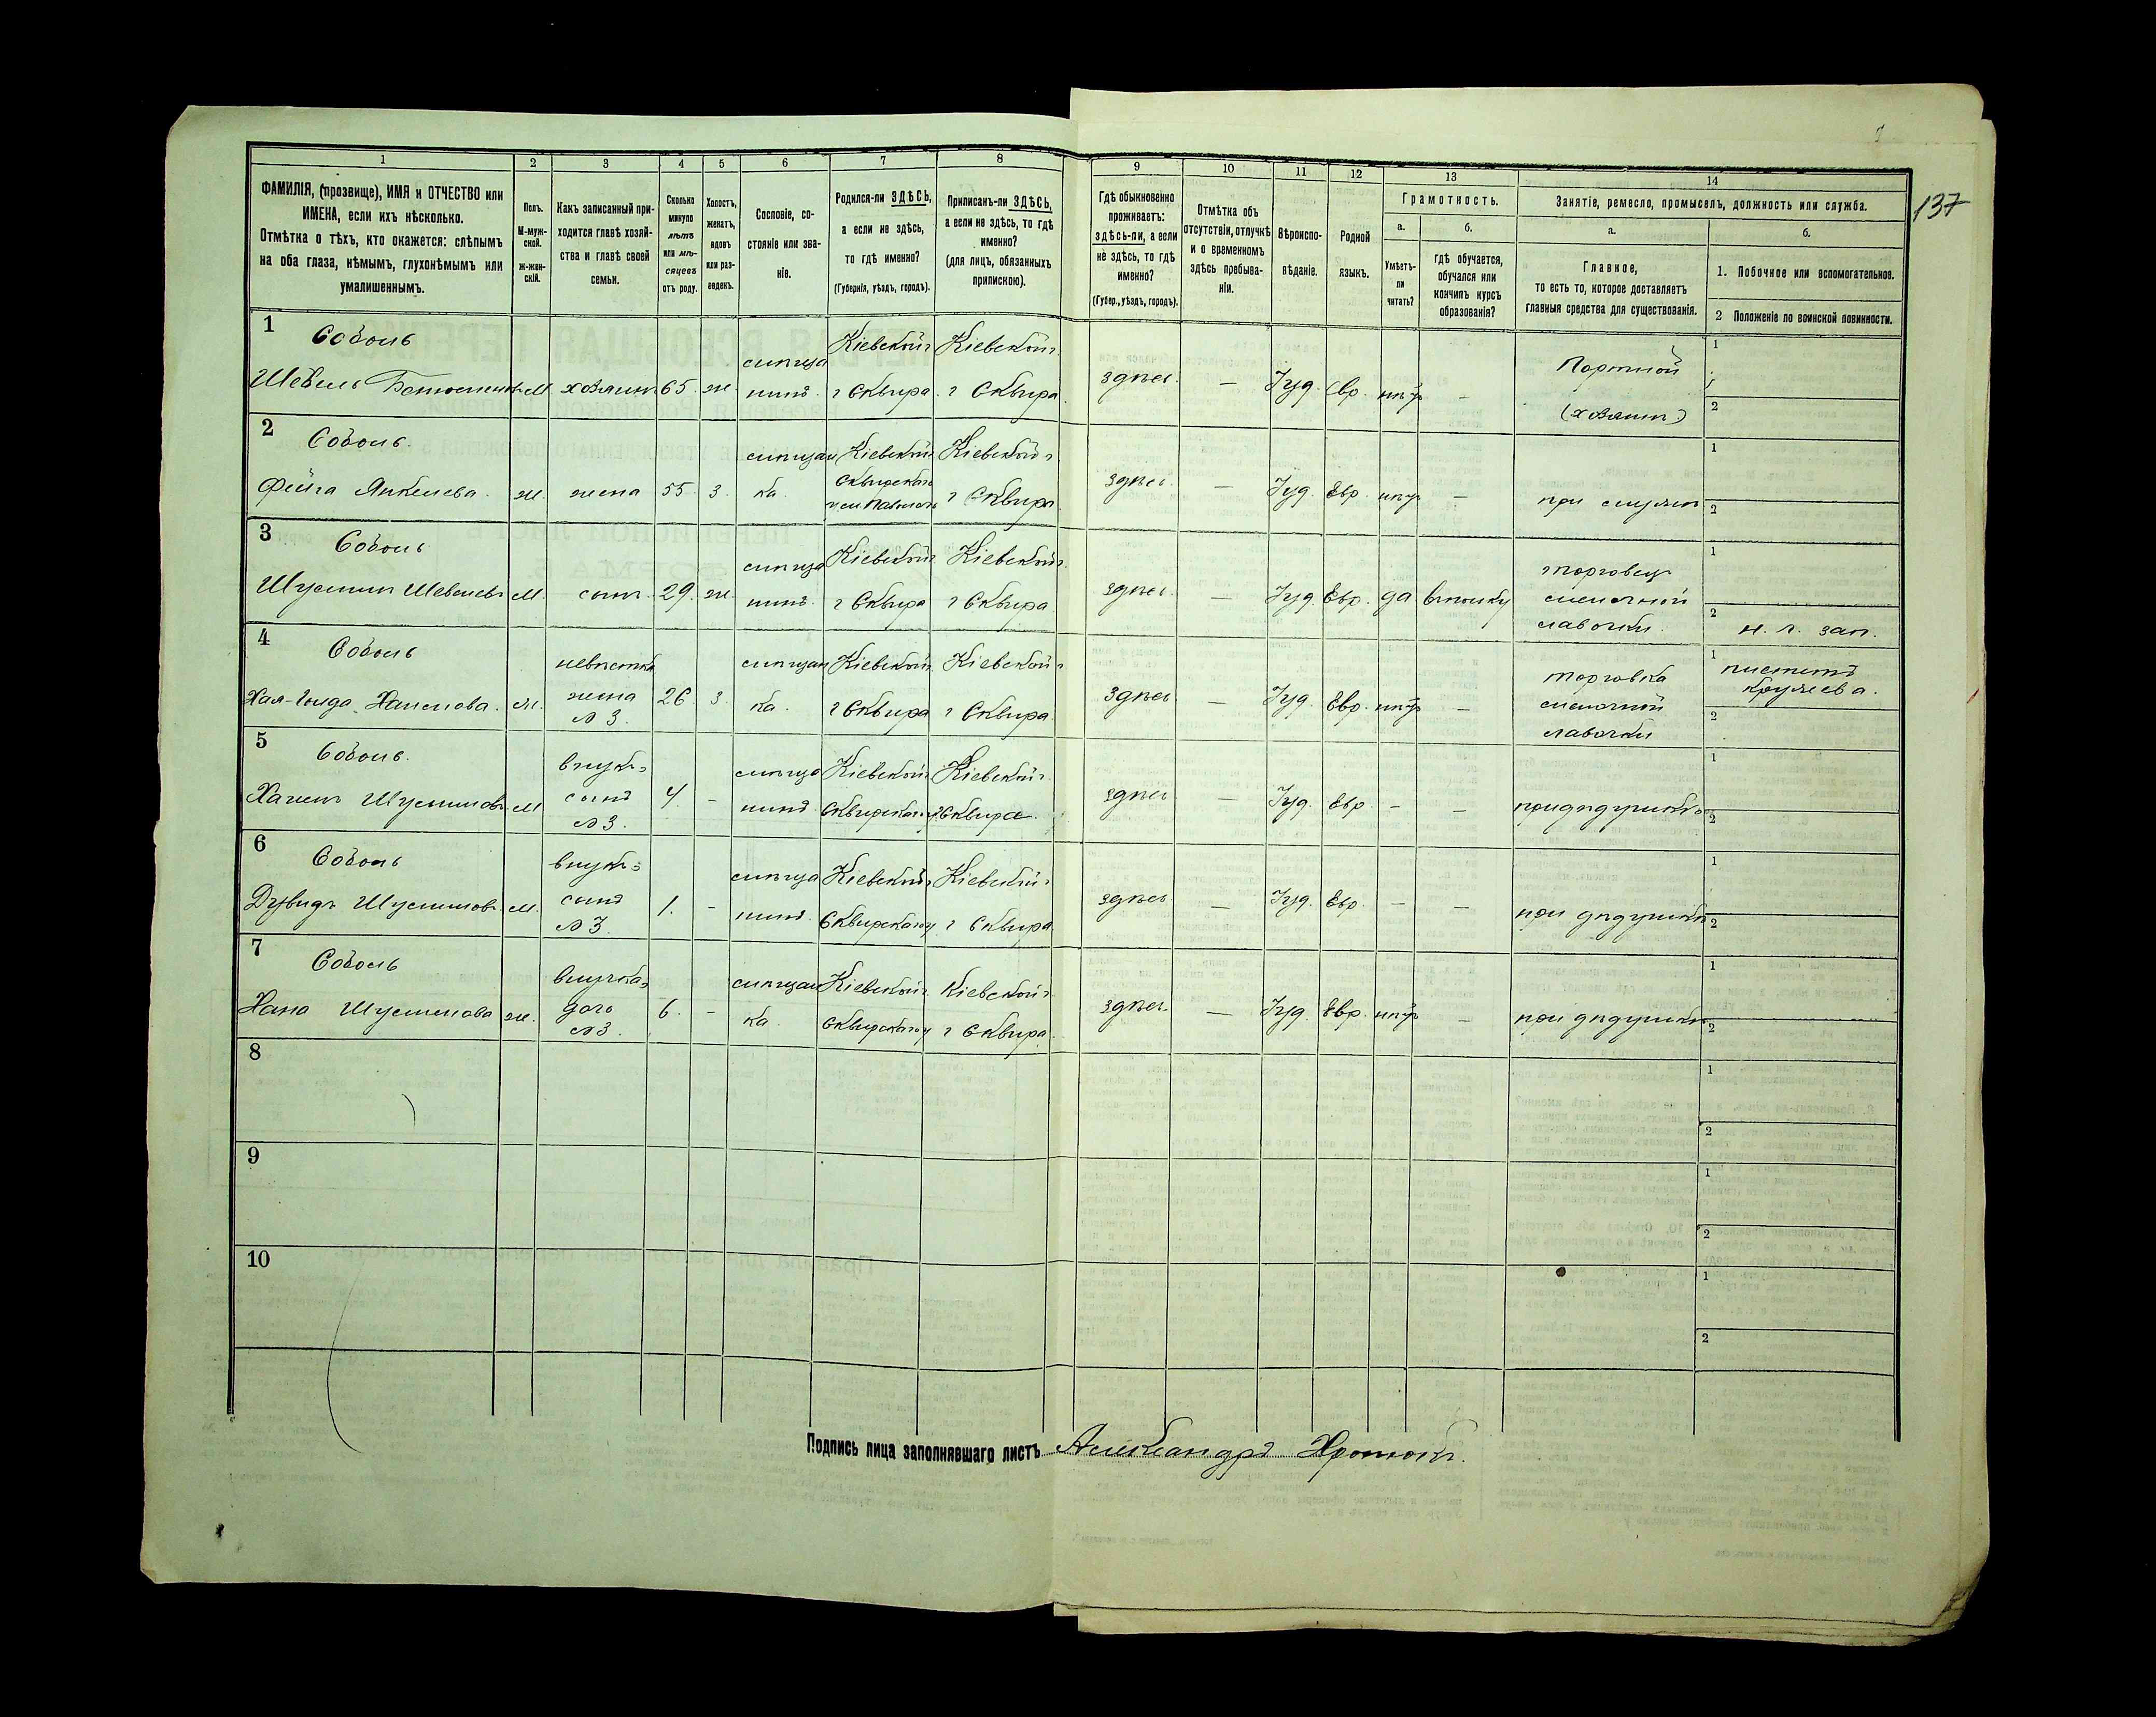 137
1 2 3 4 5 6 7 8 9 10 11 12 13 14
ФАМИЛІЯ, (прозвище), ИМЯ и ОТЧЕСТВО или
ИМЕНА, если ихъ нѣсколько.
Отмѣтка о тѣхъ, кто окажется: слѣпымъ
на оба глаза, нѣмымъ, глухонѣмымъ или
умалишеннымъ.
Полъ.
М-муж-
ской.
Ж-жен-
скій.
Какъ записанный при-
ходится главѣ хозяй-
ства и главѣ своей
семьи.
Сколько
минуло
лѣтъ
или мѣ-
сяцевъ
отъ роду.
Холостъ,
женатъ,
вдовъ
или раз-
веденъ.
Сословіе, со-
стояніе или зва-
ніе.
Родился-ли ЗДѢСЬ,
а если не здѣсь,
то гдѣ именно?
(Губернія, уѣздъ, городъ).
Приписанъ-ли ЗДѢСЬ,
а если не здѣсь, то гдѣ
именно?
(для лицъ, обязанныхъ
припискою).
Гдѣ обыкновенно
проживаетъ:
здѣсь-ли, а если
не здѣсь, то гдѣ
именно?
(Губер., уѣздъ, городъ).
Отмѣтка объ
отсутствіи, отлучкѣ
и о временномъ
здѣсь пребыва-
ніи.
Вѣроиспо-
вѣданіе.
Родной
языкъ.
Грамотность.
а.
Умѣетъ-
ли
читать?
б.
гдѣ обучается,
обучался или
кончилъ курсъ
образованія?
Занятіе, ремесло, промыселъ, должность или служба.
а.
Главное,
то есть то, которое доставляетъ
главныя средства для существованія.
б.
1. Побочное или вспомогательное.
2 Положеніе по воинской повинности.
1
Соболь
Шевель М хозяинъ 65. ж.
мѣща
нинъ.
Кіевской г
г Сквира.
Кіевской г.
г Сквира
здѣсь. — Іуд. Евр. нѣтъ –
Портной
(хозяинъ)
1
2
2
Соболь.
Фейга Янкелева. ж. жена 55. З.
мѣщан
ка.
Кіевской г
Сквирскаго
Кіевской г
г Сквира
здѣсь. — Іуд. Евр. нѣтъ —
при мужѣ
1
2
3
Соболь
Шулимъ Шевелевъ М. сынъ. 29. ж.
мѣща
нинъ.
Кіевской г
г Сквира
Кіевской г.
г Сквира
здѣсь — Іуд. Евр. да
торговецъ
мелочной
лавочки.
1
2 н. г. зап.
4
Соболь
Хая-Голда
невѣстка
жена
№ 3.
26 З.
мѣщан
ка.
Кіевской г.
г Сквира
Кіевской г
г Сквира.
здѣсь — Іуд. Евр. нѣтъ –
торговка
мелочной
лавочки
1 плететъ
кружева.
2
5
Соболь.
Шулимовъ. М
внукъ-
сынъ
№ 3.
4. -
мѣща
нинъ
Кіевской г
Сквирскаго у
Кіевской г.
г Сквира.
здѣсь — Іуд. Евр. – —
при дѣдушкѣ
1
2
6
Соболь
Дувидъ Шулимовъ. М.
внукъ-
сынъ
№ 3.
1. -
мѣща
нинъ.
Кіевской г
Сквирскаго у
Кіевской г
г Сквира.
здѣсь — Іуд. Евр. – —
при дѣдушкѣ
1
2
7
Соболь
Хана Шулимова ж.
внучка-
дочь
№ 3.
6. -
мѣщан
ка.
Кіевской г.
Сквирскаго у
Кіевской г
г Сквира.
здѣсь. — Іуд. Евр. нѣтъ –
при дѣдушкѣ
1
2
8
1
2
9
1
2
10
1
2
Подпись лица заполнявшаго листъ Александръ